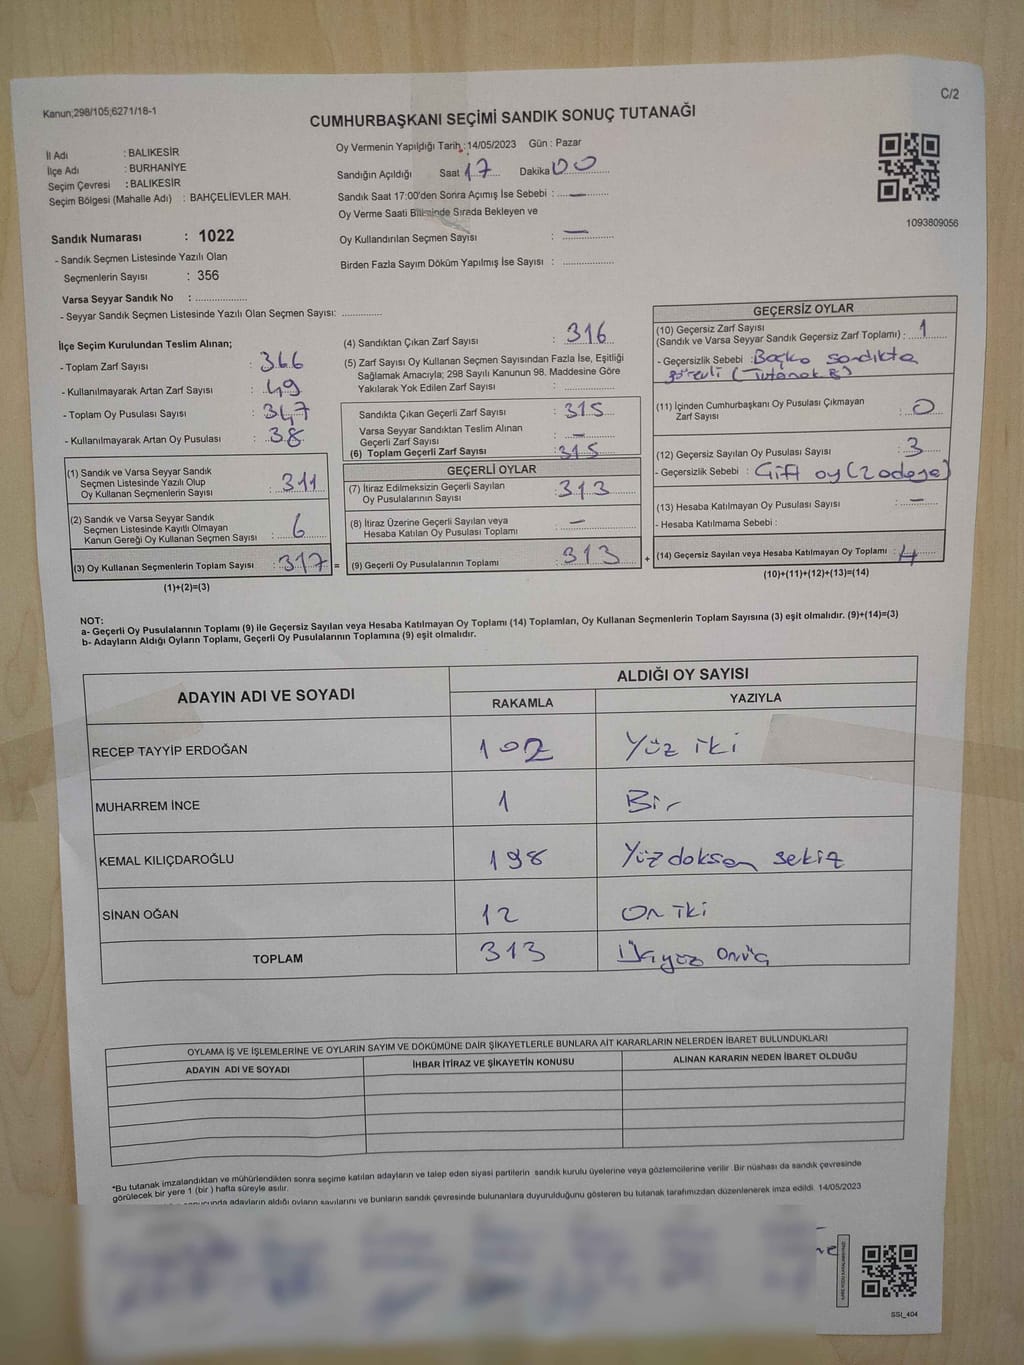 Kanun;298/105;6271/18-1
C/2
CUMHURBAŞKANI SEÇİMİ SANDIK SONUÇ TUTANAĞI
İl Adı : BALIKESİR
İlçe Adı : BURHANİYE
Seçim Çevresi : BALIKESİR
Seçim Bölgesi (Mahalle Adı) : BAHÇELİEVLER MAH.
Sandık Numarası : 1022
- Sandık Seçmen Listesinde Yazılı Olan
Seçmenlerin Sayısı : 356
Varsa Seyyar Sandık No : ..................
- Seyyar Sandık Seçmen Listesinde Yazılı Olan Seçmen Sayısı: ..............
Oy Vermenin Yapıldığı Tarih :14/05/2023 Gün : Pazar
Sandığın Açıldığı Saat 17 Dakika 00
Sandık Saat 17:00'den Sonra Açımış İse Sebebi : —
Oy Verme Saati Bitiminde Sırada Bekleyen ve
Oy Kullandırılan Seçmen Sayısı : —
Birden Fazla Sayım Döküm Yapılmış İse Sayısı : ..................
1093809056
İlçe Seçim Kurulundan Teslim Alınan;
- Toplam Zarf Sayısı : 366
- Kullanılmayarak Artan Zarf Sayısı : 49
- Toplam Oy Pusulası Sayısı : 347
- Kullanılmayarak Artan Oy Pusulası : 38
(1) Sandık ve Varsa Seyyar Sandık
Seçmen Listesinde Yazılı Olup
Oy Kullanan Seçmenlerin Sayısı : 311
(2) Sandık ve Varsa Seyyar Sandık
Seçmen Listesinde Kayıtlı Olmayan
Kanun Gereği Oy Kullanan Seçmen Sayısı : 6
(3) Oy Kullanan Seçmenlerin Toplam Sayısı : 317 =
(1)+(2)=(3)
(4) Sandıktan Çıkan Zarf Sayısı : 316
(5) Zarf Sayısı Oy Kullanan Seçmen Sayısından Fazla İse, Eşitliği
Sağlamak Amacıyla; 298 Sayılı Kanunun 98. Maddesine Göre
Yakılarak Yok Edilen Zarf Sayısı : ..................
Sandıkta Çıkan Geçerli Zarf Sayısı : 315
Varsa Seyyar Sandıktan Teslim Alınan
Geçerli Zarf Sayısı : —
(6) Toplam Geçerli Zarf Sayısı : 315
GEÇERLİ OYLAR
(7) İtiraz Edilmeksizin Geçerli Sayılan
Oy Pusulalarının Sayısı : 313
(8) İtiraz Üzerine Geçerli Sayılan veya
Hesaba Katılan Oy Pusulası Toplamı : —
(9) Geçerli Oy Pusulalarının Toplamı : 313 +
GEÇERSİZ OYLAR
(10) Geçersiz Zarf Sayısı
(Sandık ve Varsa Seyyar Sandık Geçersiz Zarf Toplamı) : 1
- Geçersizlik Sebebi : Başka sandıkta
görevli (Tutanak B)
(11) İçinden Cumhurbaşkanı Oy Pusulası Çıkmayan
Zarf Sayısı : 0
(12) Geçersiz Sayılan Oy Pusulası Sayısı : 3
- Geçersizlik Sebebi : Çift oy (2 adaya)
(13) Hesaba Katılmayan Oy Pusulası Sayısı : —
- Hesaba Katılmama Sebebi :
(14) Geçersiz Sayılan veya Hesaba Katılmayan Oy Toplamı : 4
(10)+(11)+(12)+(13)=(14)
NOT:
a- Geçerli Oy Pusulalarının Toplamı (9) ile Geçersiz Sayılan veya Hesaba Katılmayan Oy Toplamı (14) Toplamları, Oy Kullanan Seçmenlerin Toplam Sayısına (3) eşit olmalıdır. (9)+(14)=(3)
b- Adayların Aldığı Oyların Toplamı, Geçerli Oy Pusulalarının Toplamına (9) eşit olmalıdır.
ADAYIN ADI VE SOYADI
ALDIĞI OY SAYISI
RAKAMLA YAZIYLA
RECEP TAYYİP ERDOĞAN 102 Yüz iki
MUHARREM İNCE 1 Bir
KEMAL KILIÇDAROĞLU 198 Yüzdoksan sekiz
SİNAN OĞAN 12 On iki
TOPLAM 313 Üçyüz onüç
OYLAMA İŞ VE İŞLEMLERİNE VE OYLARIN SAYIM VE DÖKÜMÜNE DAİR ŞİKAYETLERLE BUNLARA AİT KARARLARIN NELERDEN İBARET BULUNDUKLARI
ADAYIN ADI VE SOYADI İHBAR İTİRAZ VE ŞİKAYETİN KONUSU ALINAN KARARIN NEDEN İBARET OLDUĞU
*Bu tutanak imzalandıktan ve mühürlendikten sonra seçime katılan adayların ve talep eden siyasi partilerin sandık kurulu üyelerine veya gözlemcilerine verilir. Bir nüshası da sandık çevresinde
görülecek bir yere 1 (bir ) hafta süreyle asılır.
adayların aldığı oyların sayılarını ve bunların sandık çevresinde bulunanlara duyurulduğunu gösteren bu tutanak tarafımızdan düzenlenerek imza edildi. 14/05/2023
SSI_404